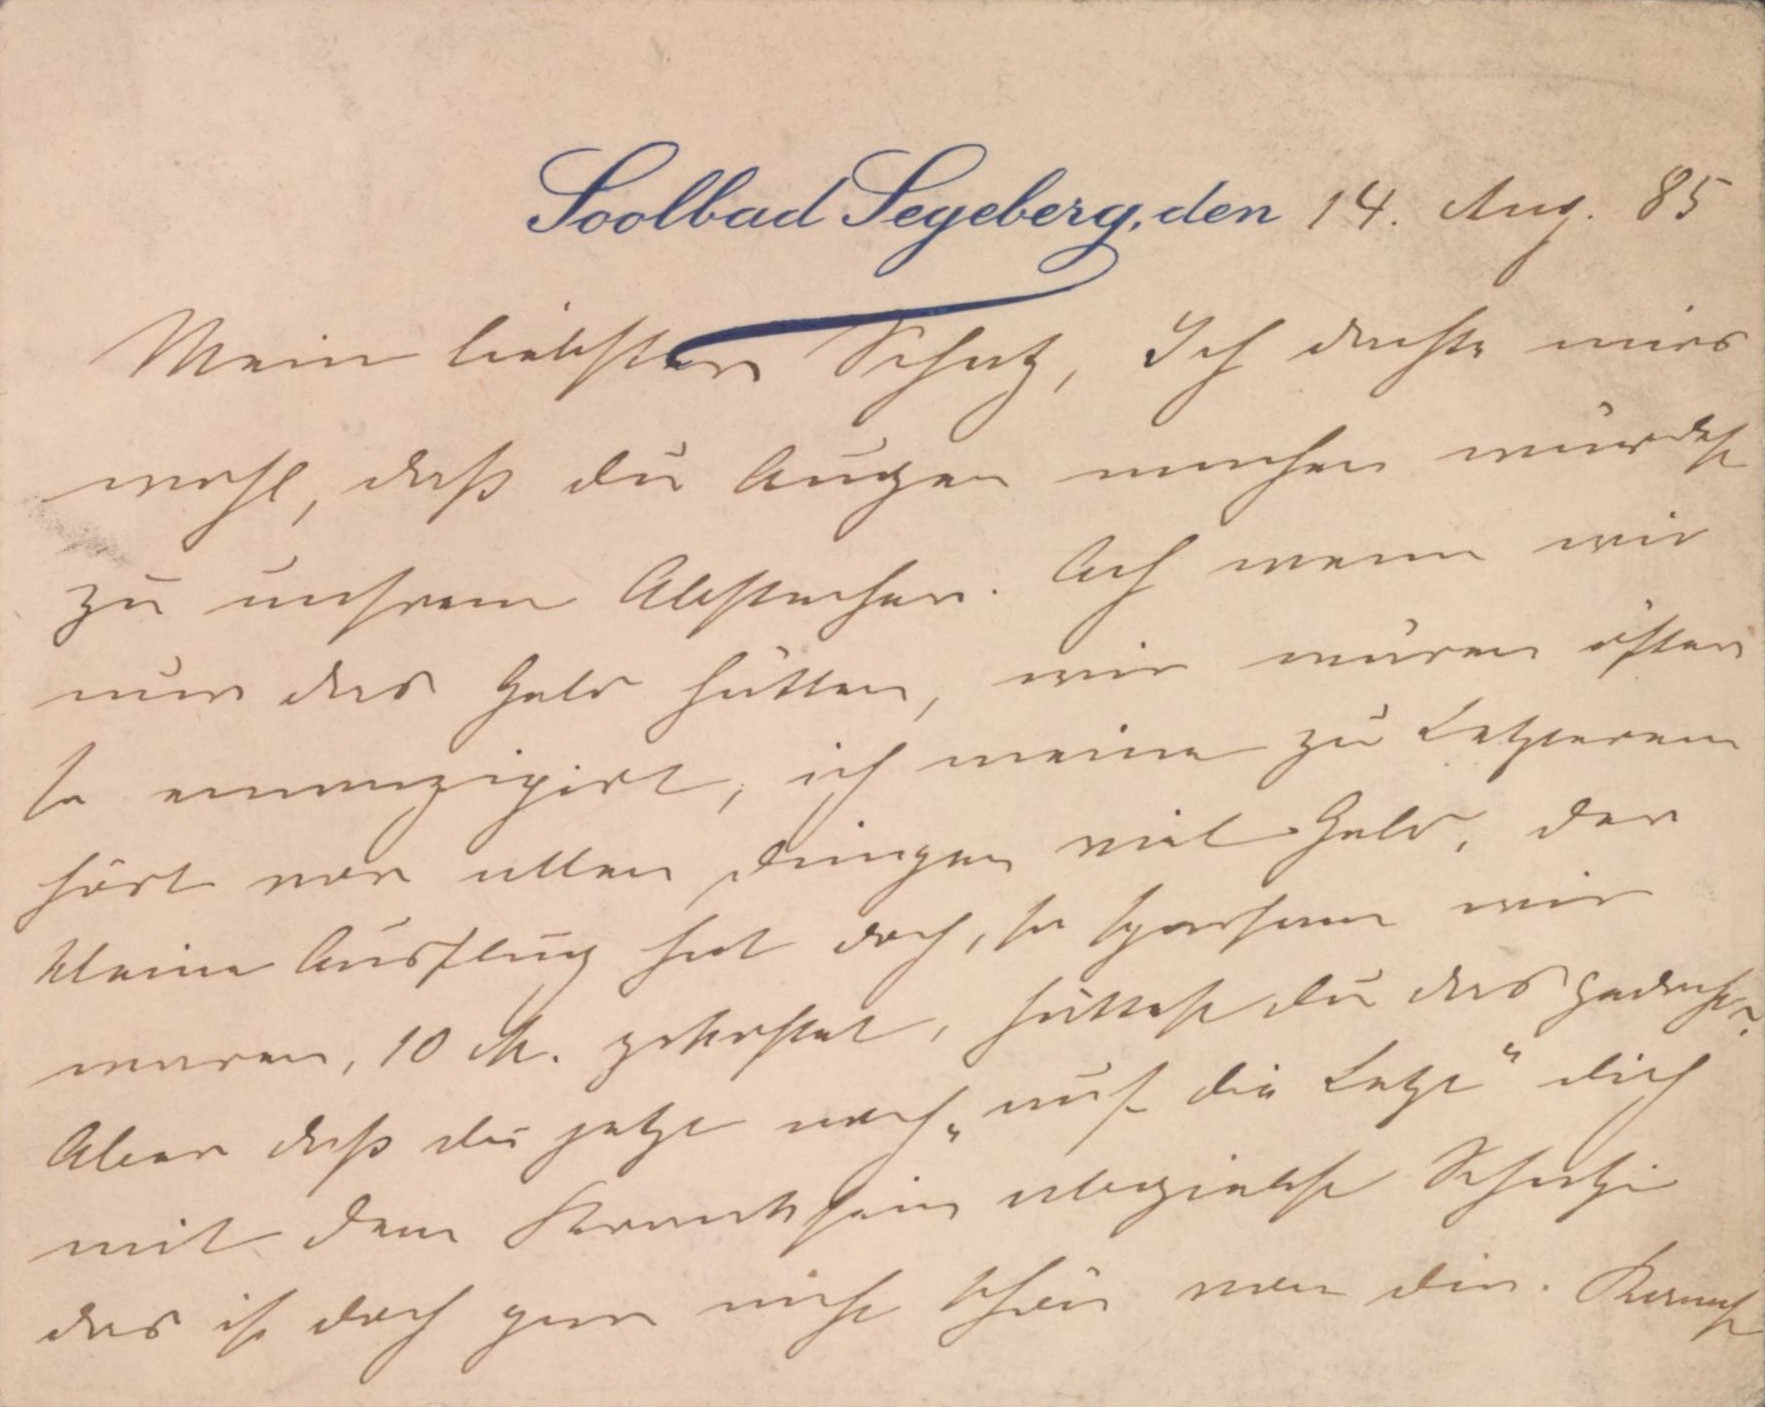 Soolbad Segeberg, den 14. Aug. 85
Mein liebster Schatz, Ich dachte mirs
wohl, daß du Augen machen würdest
zu unsrem Abstecher. Ach wenn wir
nur das Geld hätten, wir wären öfter
so emanzipirt, ich meine zu Letzterem
hört vor allen Dingen viel Geld, der
kleine Ausflug hat doch, so sparsam wir
waren, 10 M. gekostet, hättest du das gedacht?
Aber daß du jetzt noch „auf die Letzt“ dich
mit dem Krankhsein abgiebst Schatzi
das ist doch gar nicht schön von dir.